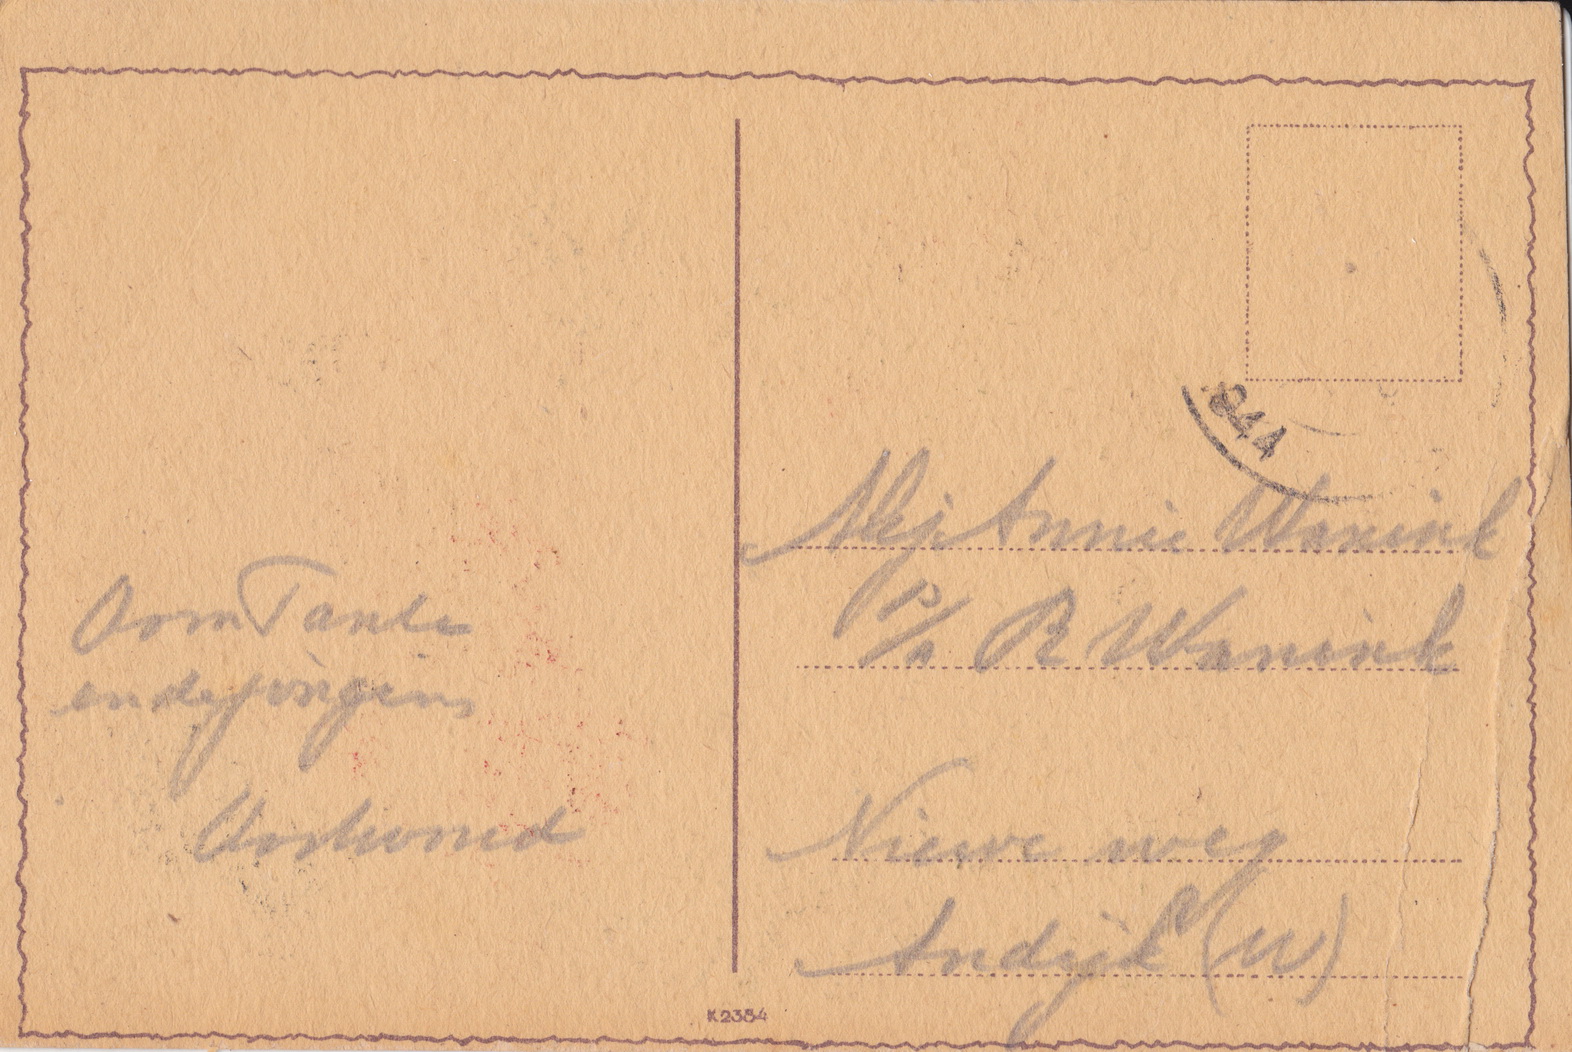 Oom Tante
en de jongens
Mej Annie Wanink
P/a R Wanink
Nieuwe weg
Andijk (W)
K2354